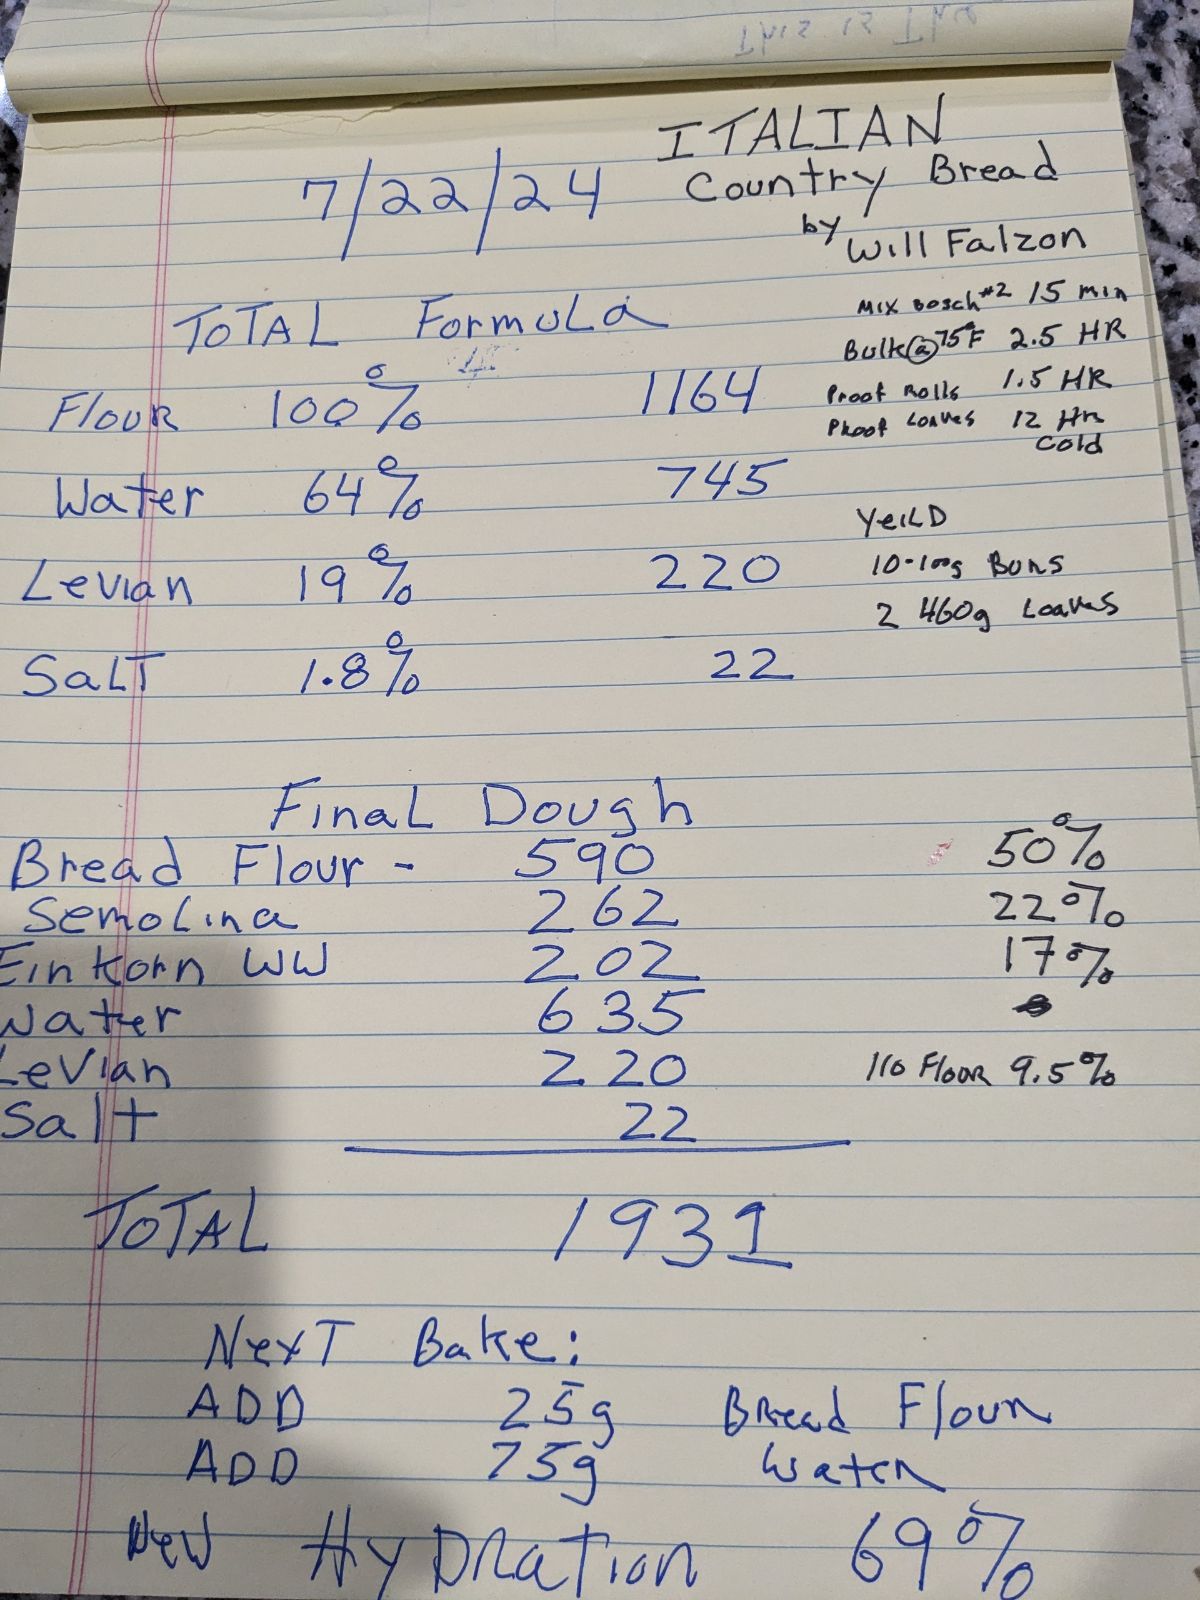 ITALIAN
Country Bread
by Will Falzon
7/22/24
Mix Bosch #2 15 min
Bulk @ 75°F 2.5 HR
Proof Rolls 1.5 HR
Proof Loaves 12 Hr
Cold
TOTAL Formula
Flour 100% 1164
Water 64% 745
Levian 19% 220
SaLT 1.8% 22
YeiLD
10-100g Buns
2 460g Loaves
Final Dough
Bread Flour - 590 50%
Semolina 262 22%
Einkorn WW 202 17%
Water 635
Levian 220 110 Flour 9.5%
Salt 22
TOTAL 1931
Next Bake:
ADD 25g Bread Flour
ADD 75g Water
New Hydration 69%